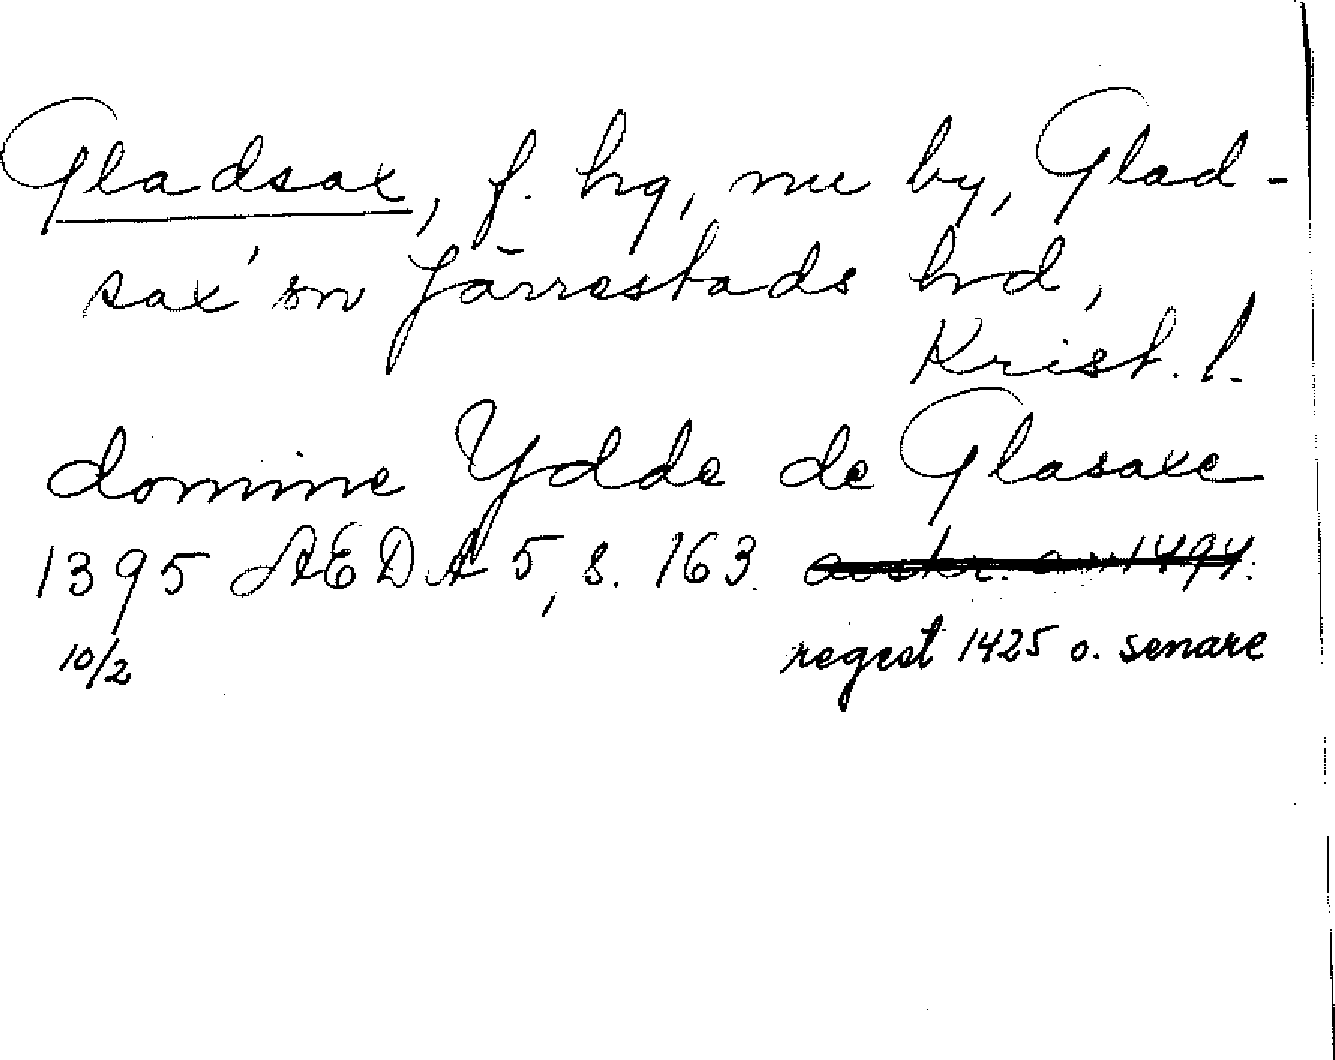 Gladsax, f. hg, nu by, Glad-
sax' sn Järrestads hd,
Krist. l.
domine Ydde de Glasaxe
1395 AEDA 5, s. 163. avskr. av 1494.
10/2 regest 1425 o. senare